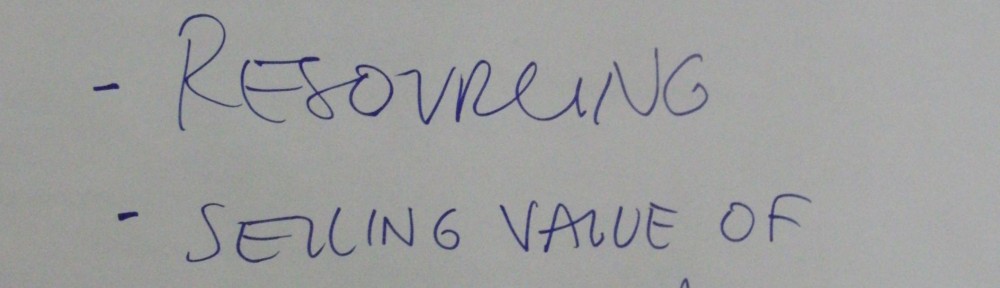 - RESOURCING
- SELLING VALUE OF